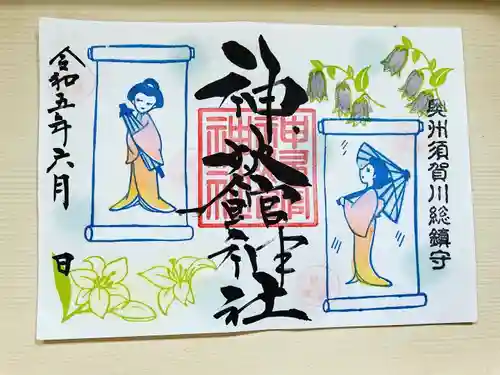 奥州須賀川総鎮守
神炊館神社
令和五年六月
日